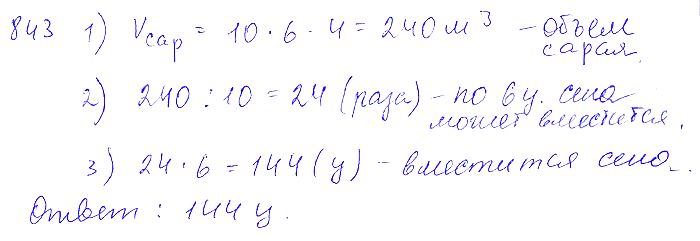 843 1) Vсар = 10 · 6 · 4 = 240 м³ – объем
сарая.
2) 240 : 10 = 24 (раза) – по 6 ц. сена
может вместится.
3) 24 · 6 = 144 (ц) – вместится сена.
Ответ : 144 ц.